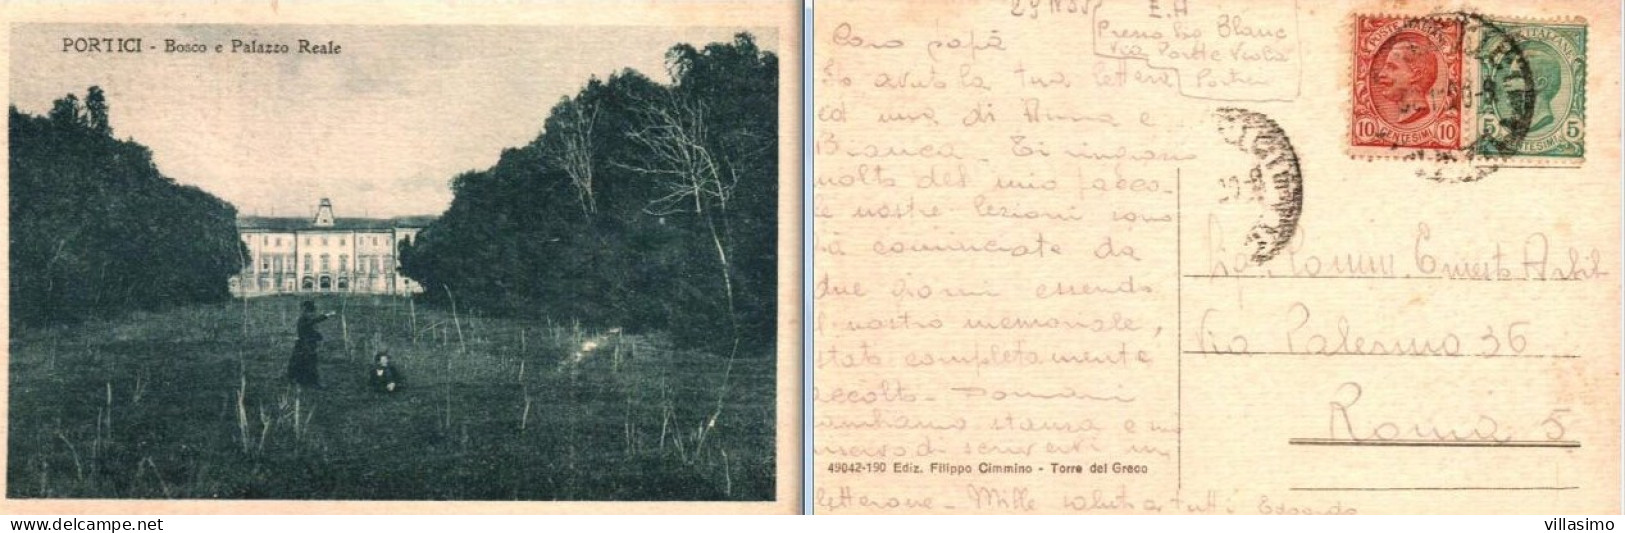 PORTICI - Bosco e Palazzo Reale
Caro papà
Ho avuto la tua lettera
ed una di Anna e
Bianca. Ti ringrazio
molto del mio pacco.
Le nostre lezioni sono
già cominciate da
due giorni essendo
il nostro memoriale,
stato completamente
accolto. Domani
cambiamo stanza e mi
riservo di scriverti un
letterone. Mille saluti a tutti Edoardo
Presso Blanc
Via Ponte
Portici
POSTE ITALIANE
10 CENTESIMI 10
POSTE ITALIANE
5 CENTESIMI 5
Ernesto
Via Palermo 36
Roma 5
49042-190 Ediz. Filippo Cimmino - Torre del Greco
villasimo